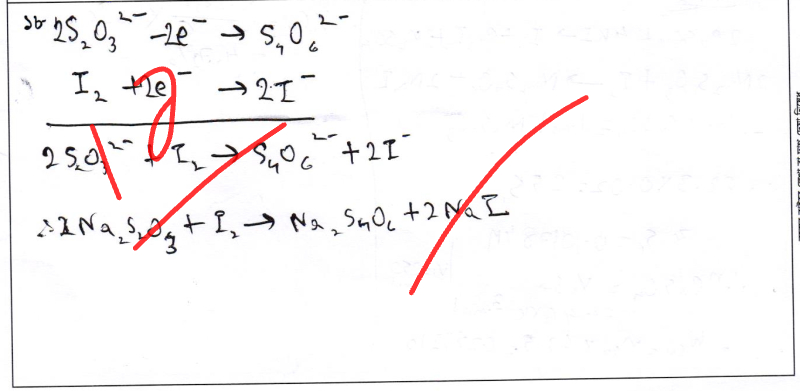 2S₂O₃²⁻ -2e⁻ → S₄O₆²⁻
I₂ +2e⁻ → 2I⁻
2S₂O₃²⁻ + I₂ → S₄O₆²⁻ + 2I⁻
Na₂S₂O₃ + I₂ → Na₂S₄O₆ + 2NaI